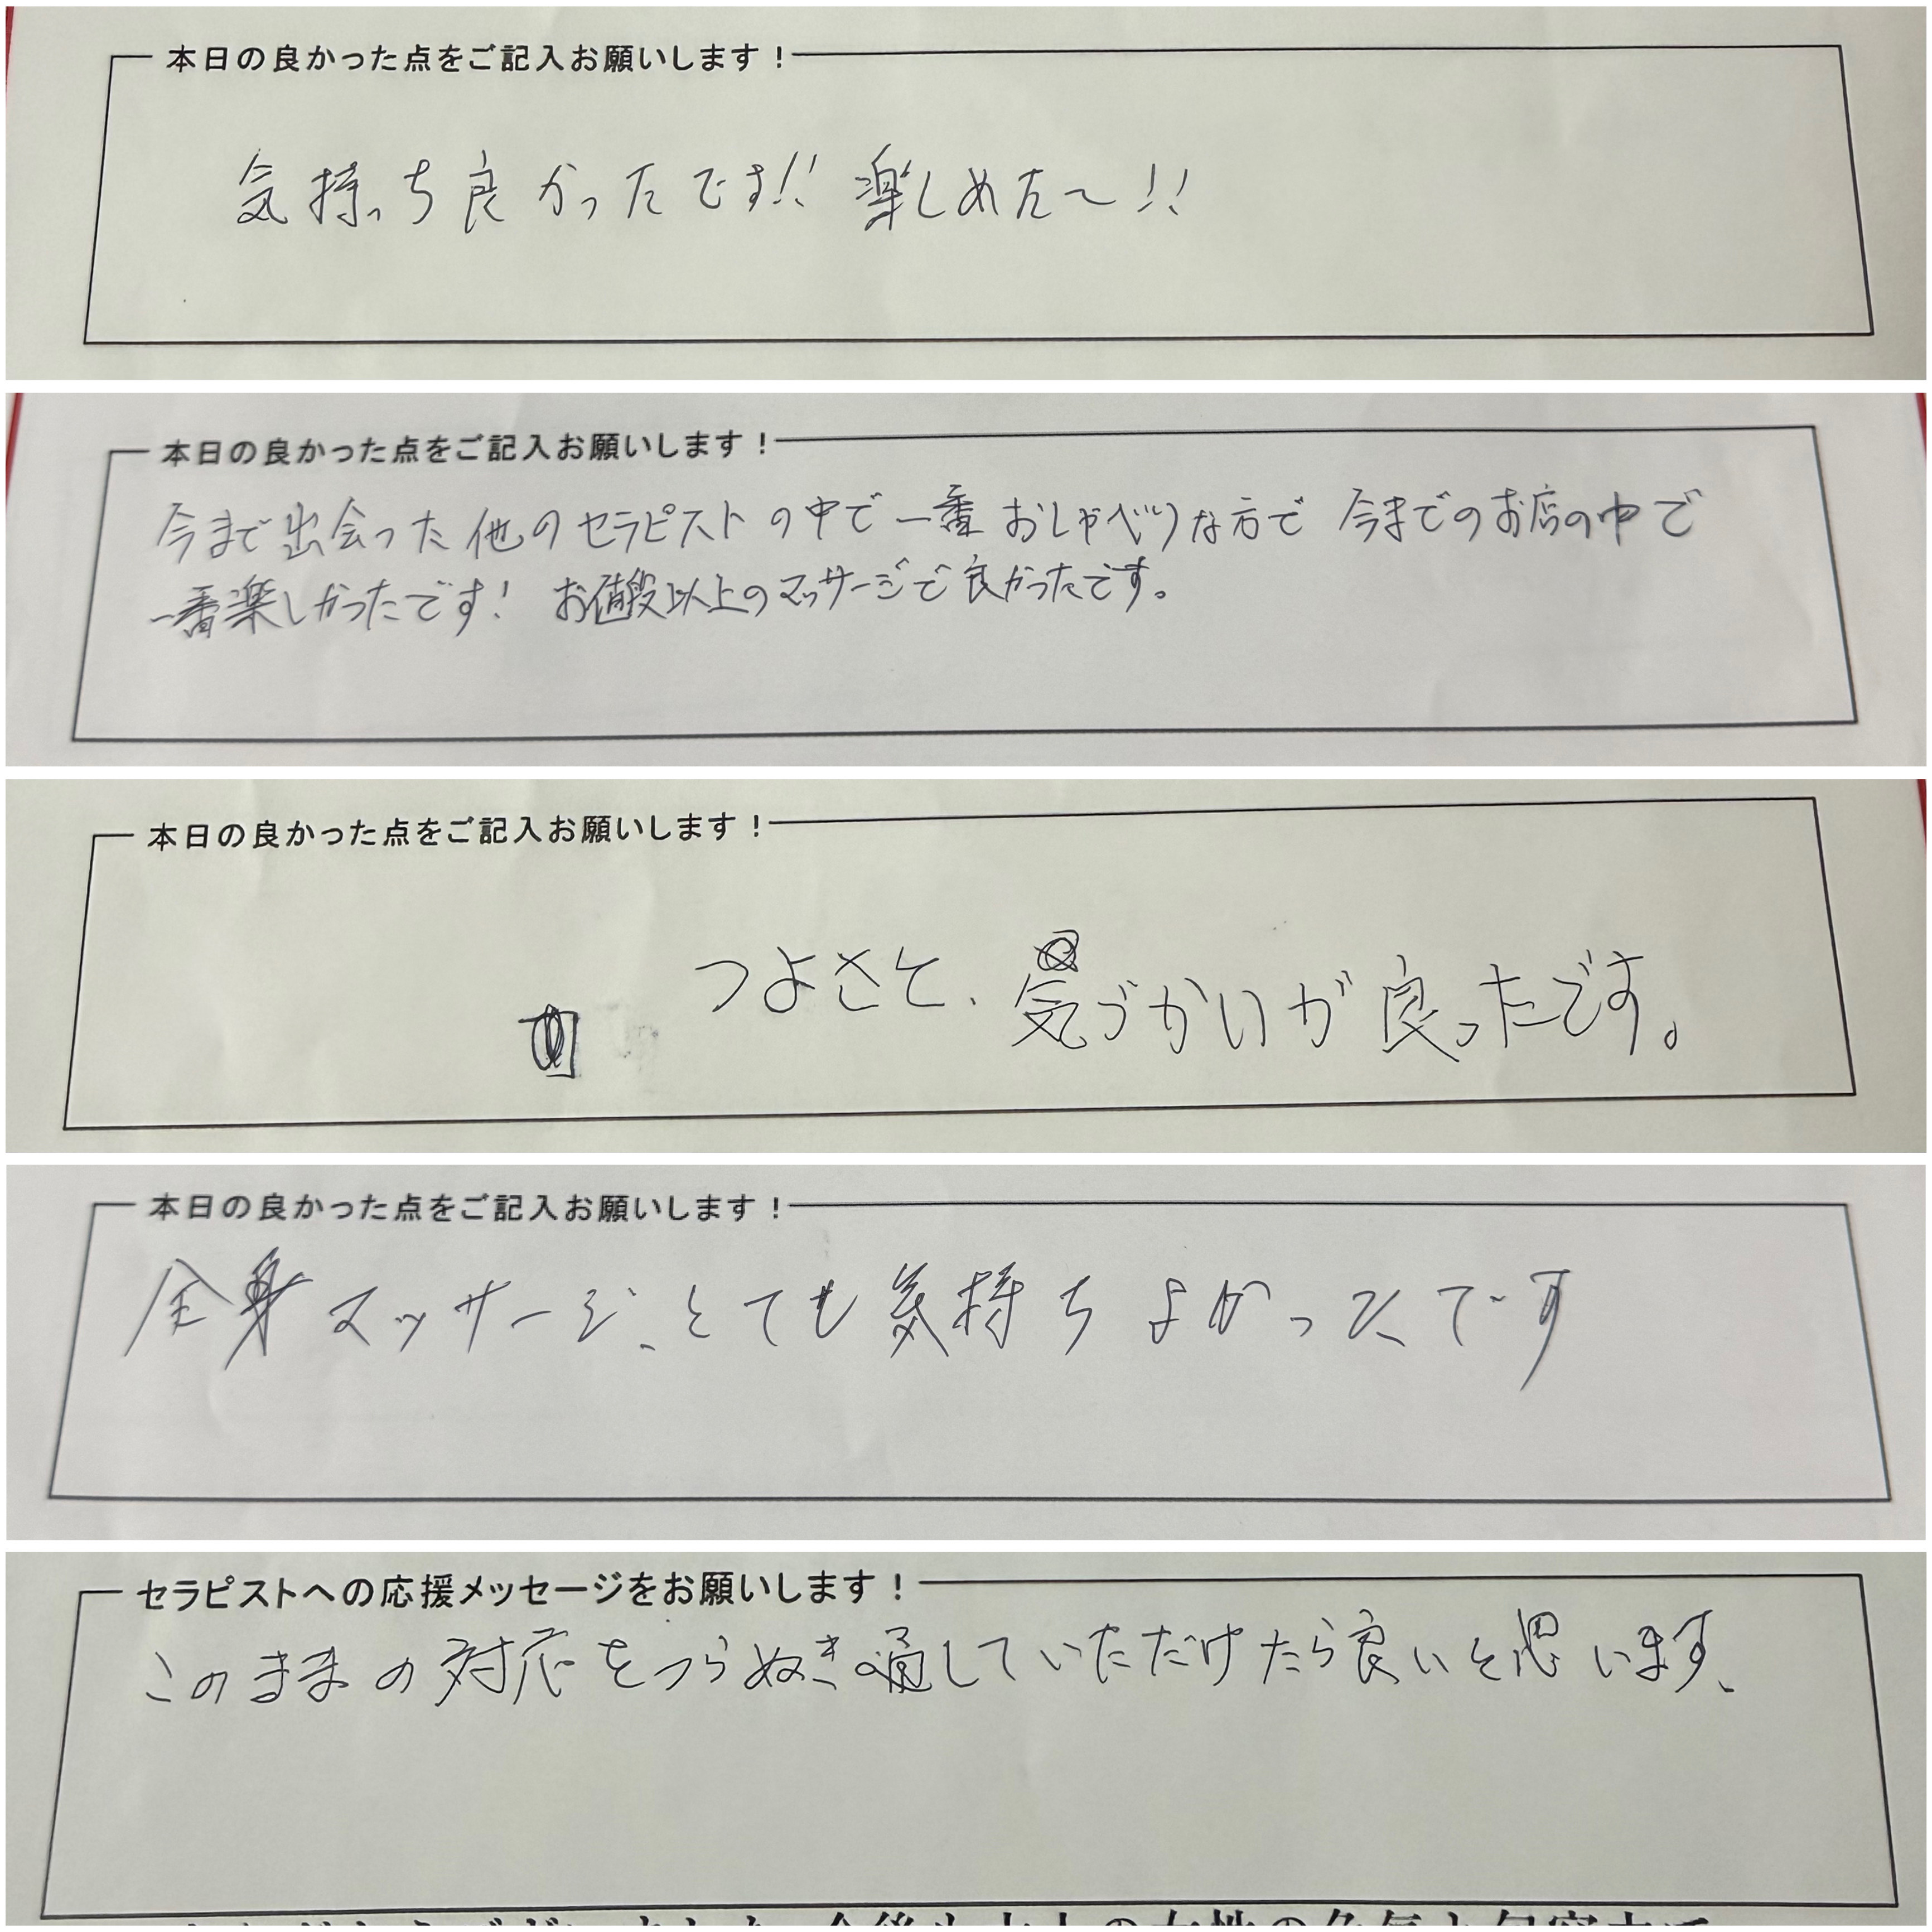 本日の良かった点をご記入お願いします！
気持っち良かったです!! 楽しめた～!!
本日の良かった点をご記入お願いします！
今まで出会った他のセラピストの中で一番おしゃべりな方で 今までのお店の中で
一番楽しかったです! お値段以上のマッサージで良かったです。
本日の良かった点をご記入お願いします！
つよさと、気づかいが良ったです。
本日の良かった点をご記入お願いします！
全身マッサージ、とても気持ちよかったです
セラピストへの応援メッセージをお願いします！
このままの対応をつらぬき通していただけたら良いと思います、